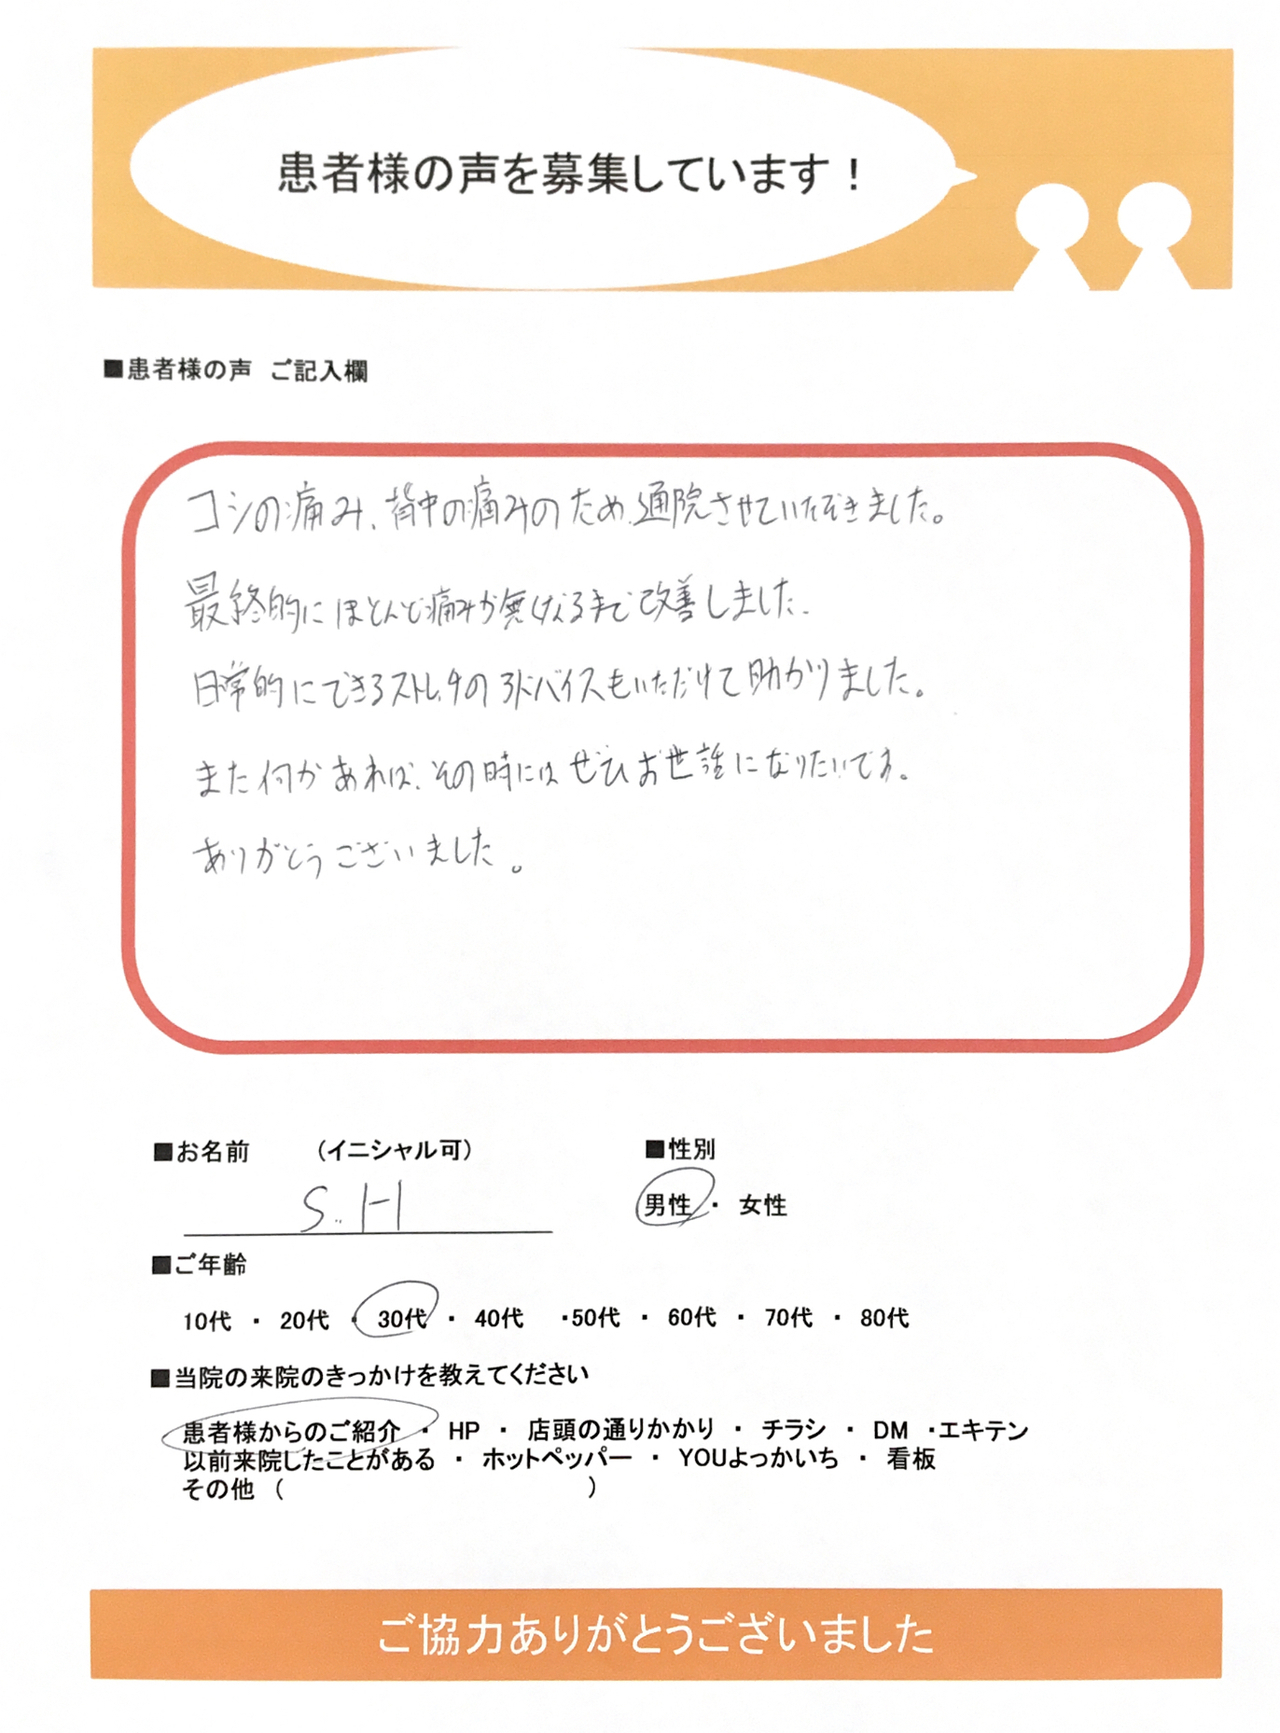 患者様の声を募集しています！
■患者様の声　ご記入欄
コシの痛み、背中の痛みのため、通院させていただきました。
最終的にほとんど痛みが無くなるまで改善しました。
日常的にできるストレッチのアドバイスもいただけて助かりました。
また何かあれば、その時にはぜひお世話になりたいです。
ありがとうございました。
■お名前　（イニシャル可）　■性別
S.H　男性 ・ 女性
■ご年齢
10代 ・ 20代 ・ 30代 ・ 40代 ・50代 ・ 60代 ・ 70代 ・ 80代
■当院の来院のきっかけを教えてください
患者様からのご紹介 ・ HP ・ 店頭の通りかかり ・ チラシ ・ DM ・エキテン
以前来院したことがある ・ ホットペッパー ・ YOUよっかいち ・ 看板
その他（　　　　）
ご協力ありがとうございました